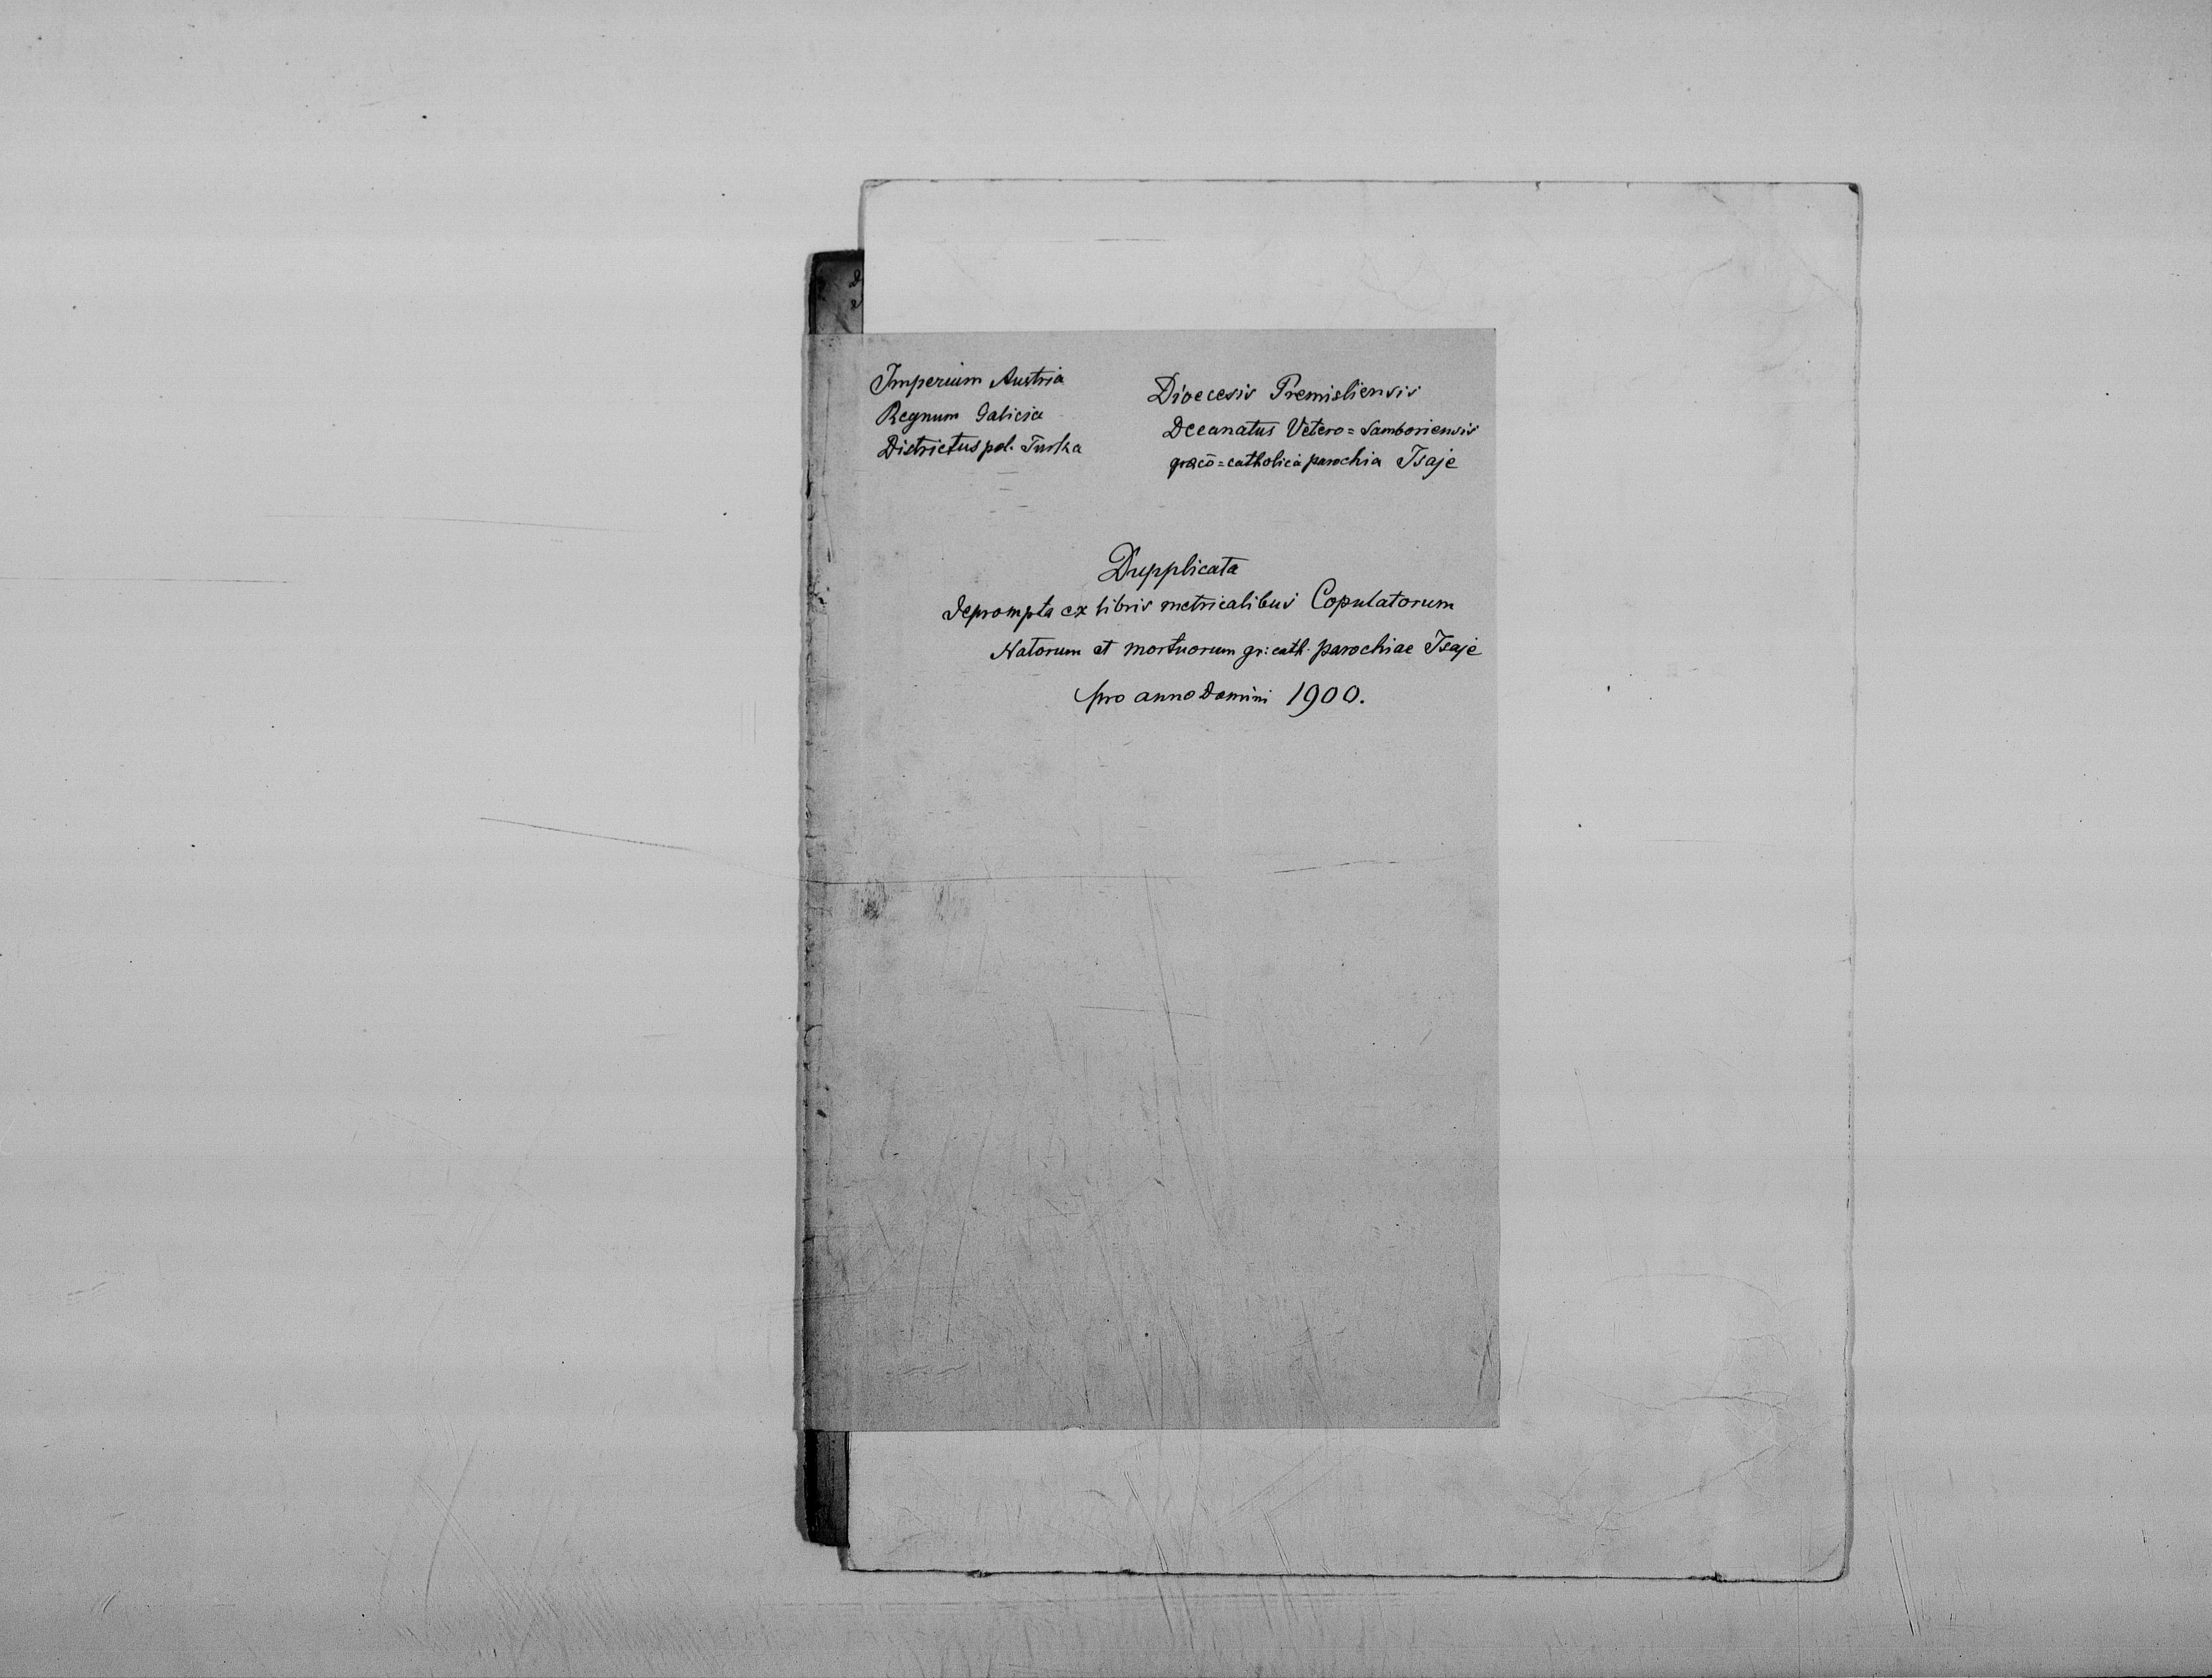 Imperium Austria
Regnum Galicia
Districtus pol. Turka
Dioecesis Premisliensis
Decanatus Vetero=Samboriensis
graeco=catholica parochia Isaje
Dupplicata
deprompta ex libris metricalibus Copulatorum
Natorum et mortuorum gr: cath. parochiae Isaje
pro anno Domini 1900.